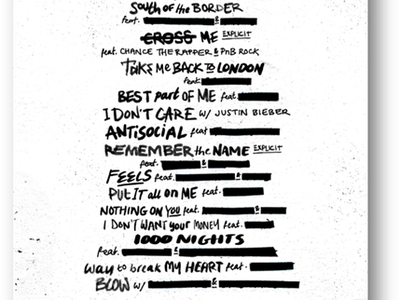 South of the BORDER
feat. &
CROSS ME EXPLICIT
feat. CHANCE THE RAPPER & PnB ROCK
TAKE ME BACK TO LONDON
feat.
BEST part OF ME feat.
I DON'T CARE w/ JUSTIN BIEBER
ANTISOCIAL feat
REMEMBER the NAME EXPLICIT
feat. &
FEELS feat. &
PUT IT all on ME feat.
NOTHING ON YOU feat. &
I DON'T WANT your MONEY feat.
1000 NIGHTS
feat. &
Way to break MY HEART feat.
BLOW w/ &